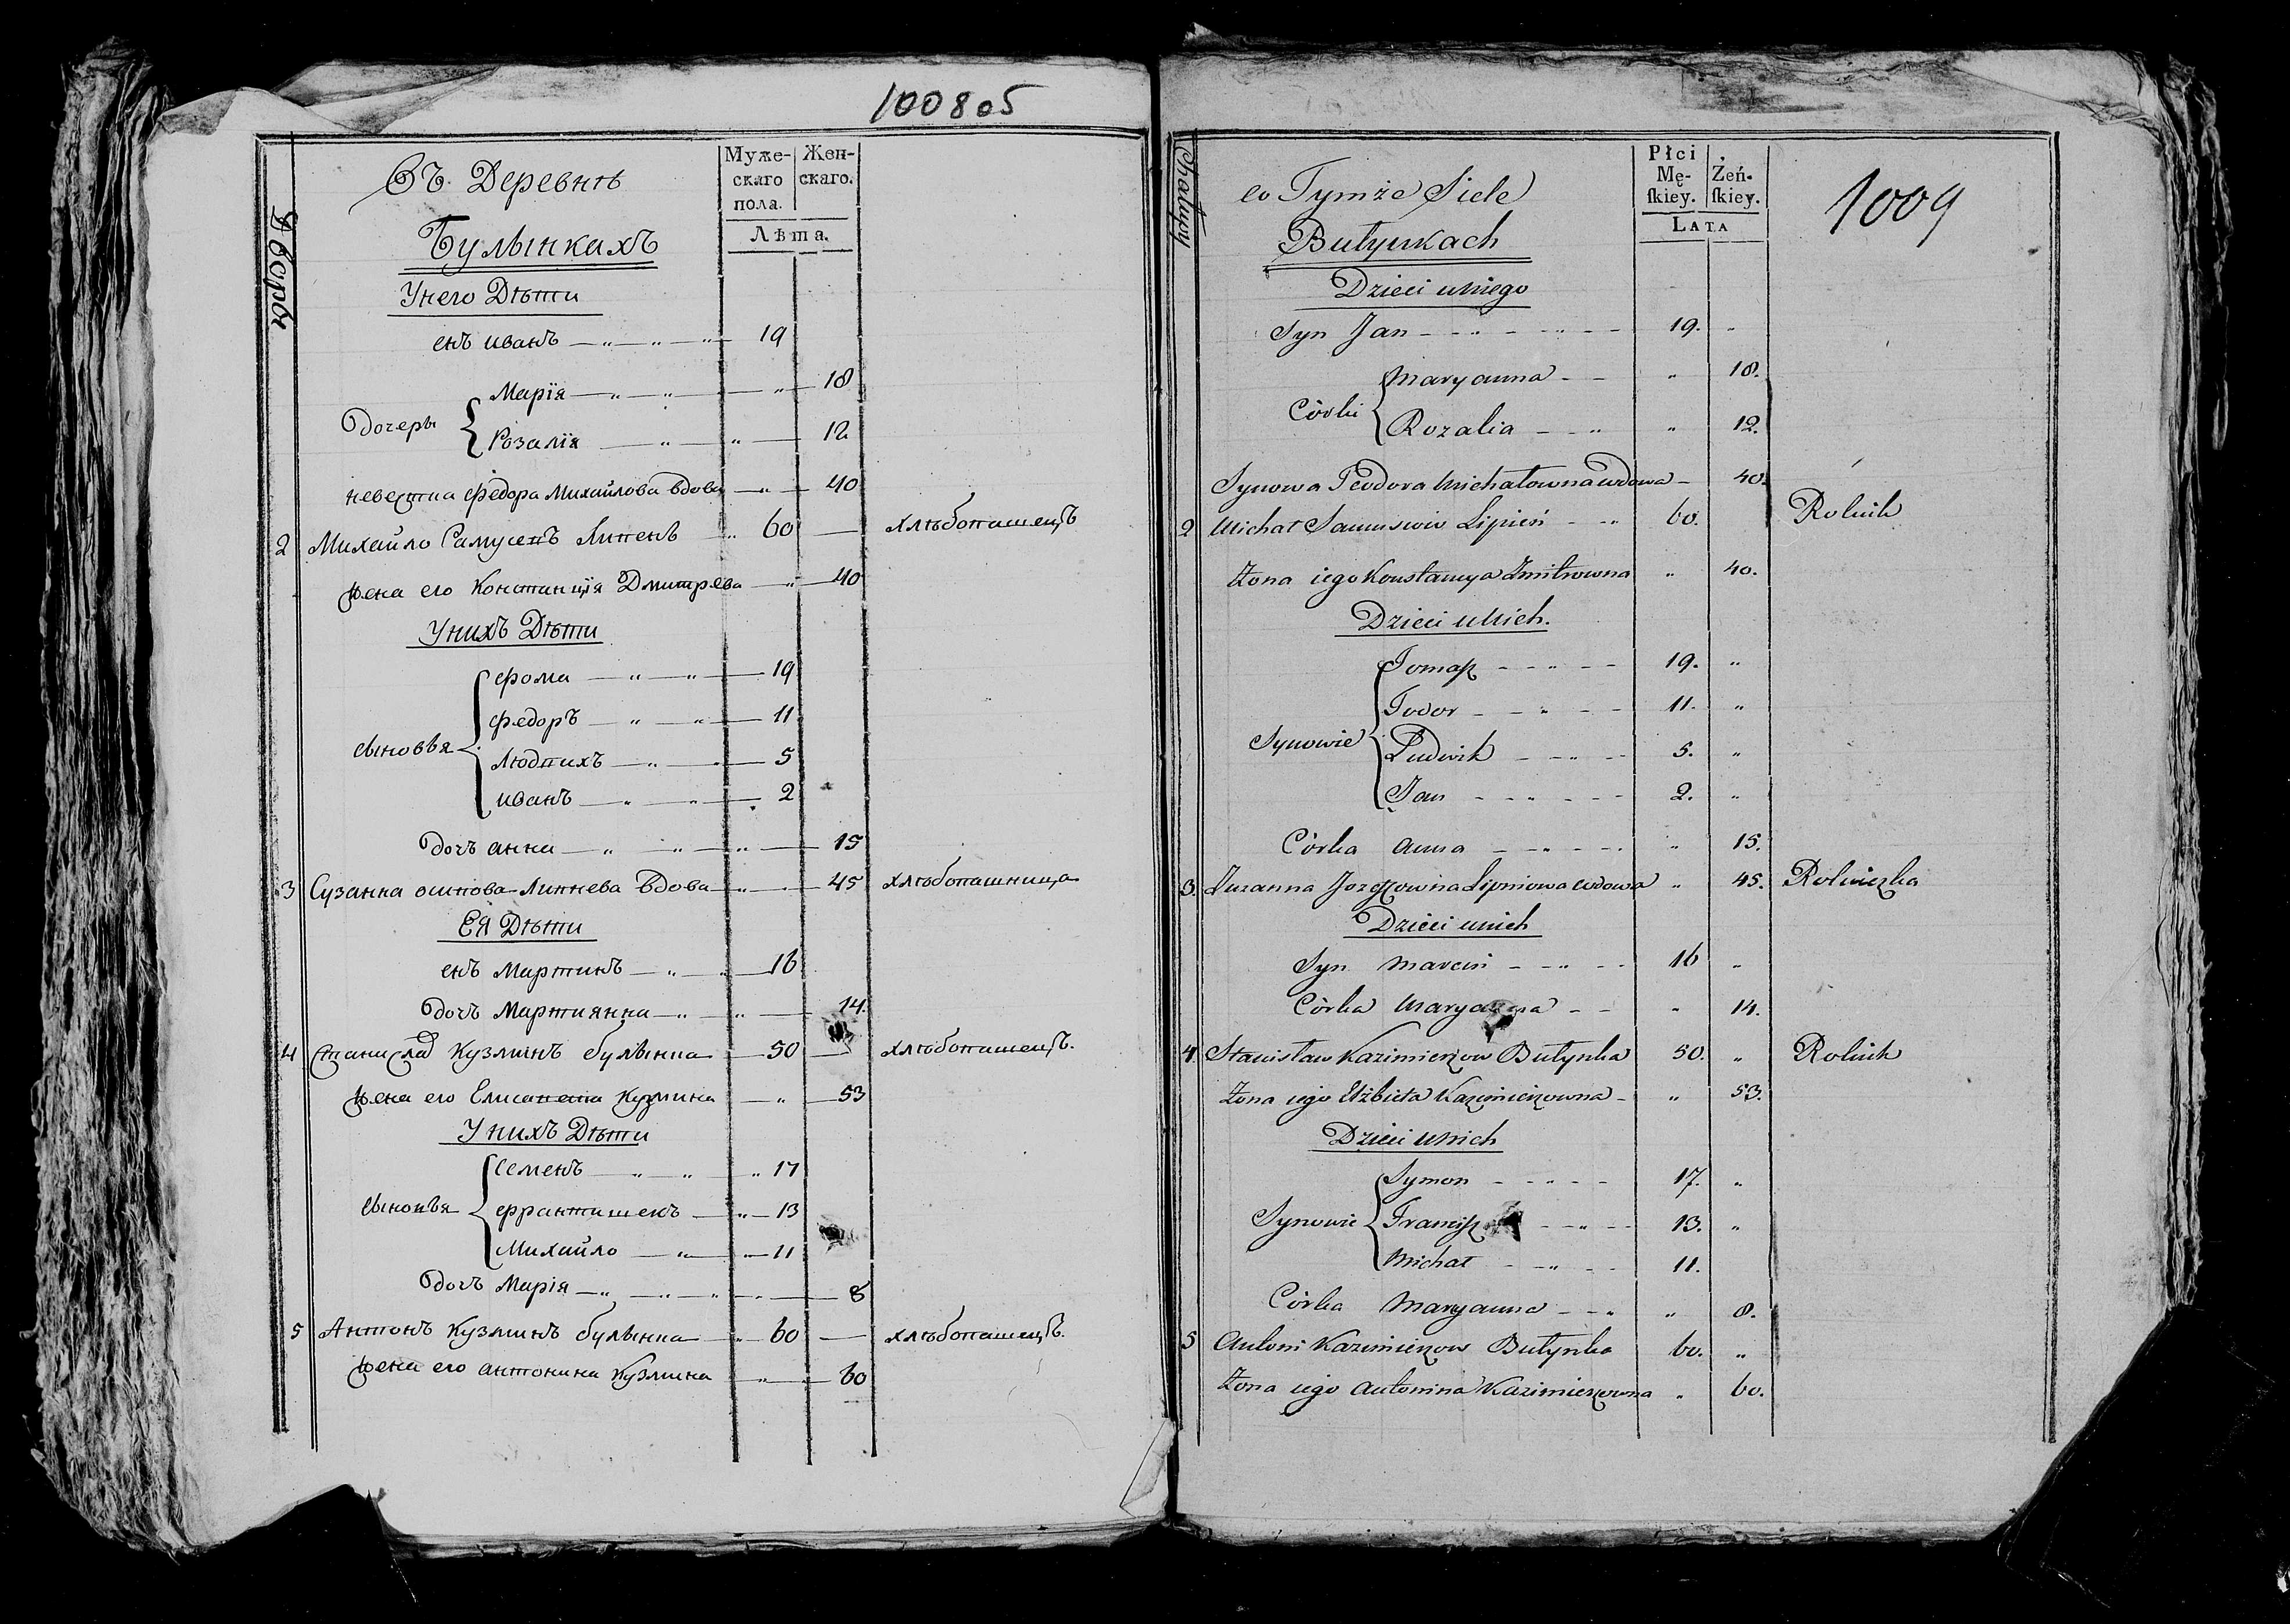 100805
Въ Деревнѣ
Муже-
скаго
пола.
Жен-
скаго.
Лѣта.
Дворы
Булынкахъ
Унего Дѣти
снъ иванъ 19
дочеры
Марїя 18
Розалїя 12
невестка федора Михайлова вдова 40
2 Михайло Самусевъ Липень 60 — хлѣбопашецъ
жена его Констанцїя Дмитрева 40
Унихъ Дѣти
сыновья
фома 19
федоръ 11
Людвихъ 5
иванъ 2
дочъ анна 15
3 Сузанна осипова Липнева вдова 45 хлѣбопашница
Ея Дѣти
снъ Мартинъ 16
дочъ Мартиянна 14.
4 Станислав Кузминъ булынка 50 — хлѣбопашецъ.
жена его Кузмина 53
Унихъ Дѣти
сыновья
Семенъ 17
францишекъ 13
Михайло 11
дочъ Марія 8
5 Антонъ Кузминъ булынка 60 — хлѣбопашецъ.
жена его антонина Кузмина 60
1009
w Tymże Siele
Płci
Mę-
ſkiey.
Żeń-
ſkiey.
LATA
Chałupy
Bułynkach
Dzieci u Niego
Syn Jan 19. "
Córki
Maryanna " 18.
Rozalia " 12.
Synowa Teodora Michałowna wdowa 40.
2 Michał Samusiow Lipień 60. Rolnik
Żona iego Konstancya Dmitrowna " 40.
Dzieci u Nich.
Synowie
Tomaſz 19. "
Todor 11. "
Ludwik 5. "
Jan 2. "
Córka Anna " 15.
3. Zuzanna Jozefowna Lipniowa wdowa " 45. Rolniczka
Dzieci u nich
Syn Marcin 16 "
Córka Maryanna " 14.
4. Stanisław Kazimierzow Bułynka 50. " Rolnik
Żona iego Elżbieta Kazimierzowna " 53.
Dzieci u Nich
Synowie
Symon 17. "
Franciſz 13. "
Michał 11.
Córka Maryanna " 8.
5 Antoni Kazimierzow Bułynka 60. "
Żona iego Antonina Kazimierzowna " 60.